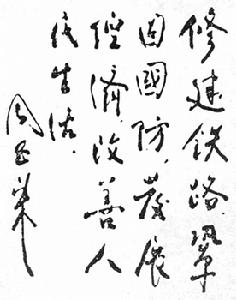 修建铁路巩
固國防,蕟展
經濟,改善人
民生活。
周恩来